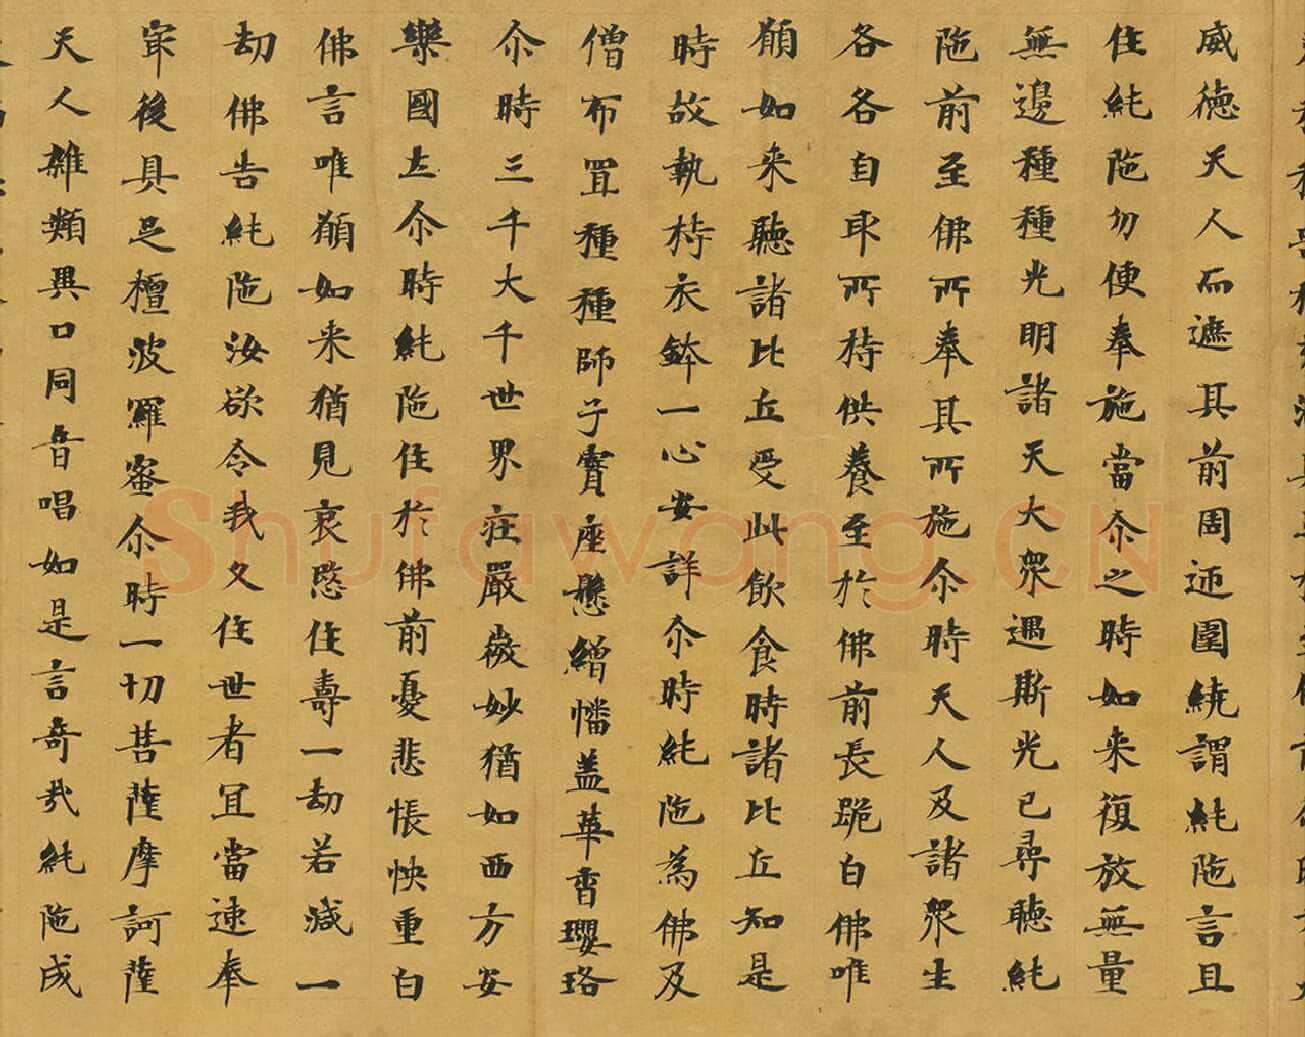 威德天人而遮其前周迊圍繞謂純陁言且
住純陁勿便奉施當尒之時如来復放無量
無邊種種光明諸天大衆遇斯光已尋聽純
陁前至佛所奉其所施尒時天人及諸衆生
各各自取所持供養至於佛前長跪白佛唯
願如来聽諸比丘受此飲食時諸比丘知是
時故執持衣鉢一心安詳尒時純陁為佛及
僧布置種種師子寶座懸繒幡盖華香瓔珞
尒時三千大千世界庄嚴微妙猶如西方安
樂國土尒時純陁住於佛前憂悲悵怏重白
佛言唯願如来猶見哀愍住壽一劫若減一
劫佛告純陁汝欲令我久住世者冝當速奉
㝡後具足檀波羅蜜尒時一切菩薩摩訶薩
天人雜類異口同音唱如是言奇㢤純陁成
Shufawang.CN